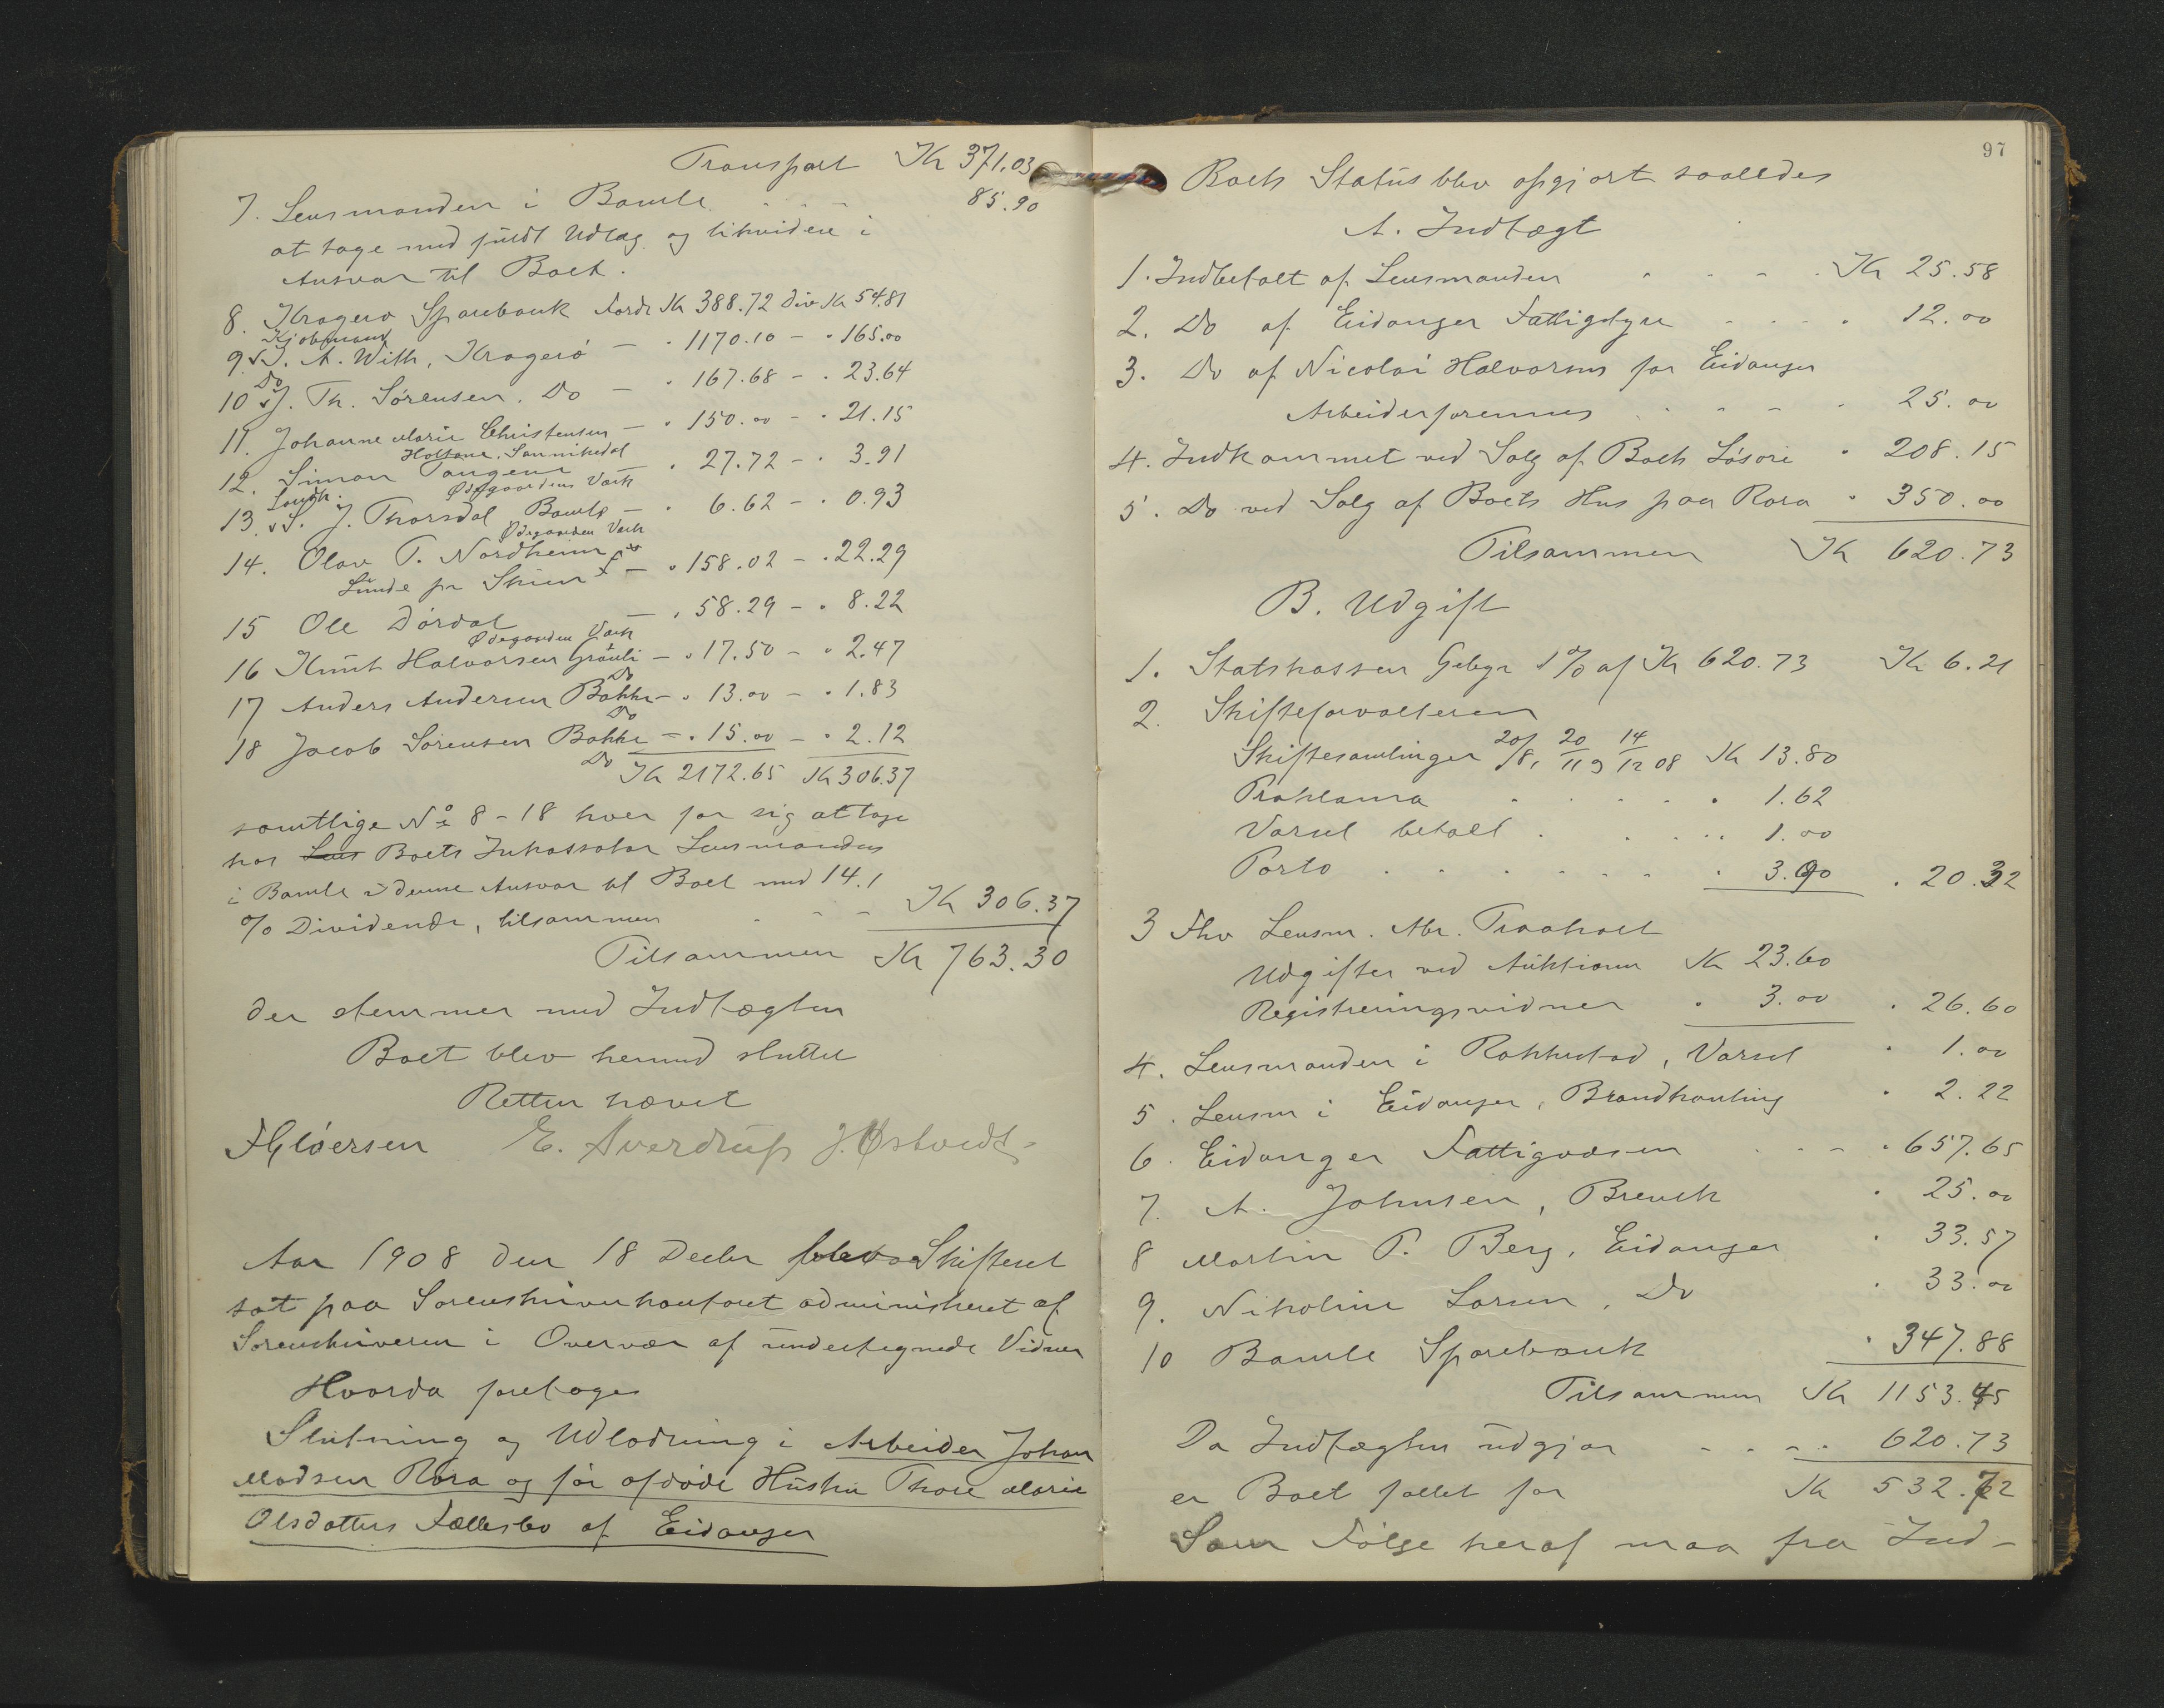 Transport Kr 371.03
7. Lensmanden i Bamle - - - 85.90
at tage med fuldt Udlæg og likvidere i
Ansvar til Boet.
8. Kragerø Sparebank Fordr Kr 388.72 Div Kr 54.81
Kjøbmand
9. S. A. With, Kragerø — " 1170.10 - " 165.00
Do
10 J. Th. Sørensen. Do — " 167.68 - " 23.64
11. Johanne Marie Christensen — " 150.00 - " 21.15
Holtane, Sannikedal
12. Simon Tangene — " 27.72 - " 3.91
Ødegaardens Værk
Landh.
13. S. J. Thorsdal Bamle — " 6.62 - " 0.93
Ødegaarden Værk
14. Olav T. Nordheim — " 158.02 - " 22.29
Lunde pr Skien
15 Ole Dørdal — " 58.29 - " 8.22
Ødegaarden Værk
16 Knut Halvorsen Grønli — " 17.50 - " 2.47
Do
17 Anders Andersen Bakke — " 13.00 - " 1.83
Do
18 Jacob Sørensen Bakke — " 15.00 - " 2.12
Do Kr 2172.65 Kr 306.37
samtlige No 8-18 hver for sig at tage
hos Lens Boets Inkassator Lensmanden
i Bamle i dennes Ansvar til Boet med 14.1
% Dividende, tilsammen - - - Kr 306.37
Tilsammen Kr 763.30
der stemmer med Indtægten
Boet blev hermed sluttet
Retten hævet
E. Sverdrup J. Østvedt
Aar 1908 den 18 Decbr blev Skifteret
sat paa Sorenskriverkontoret administreret af
Sorenskriveren i Overvær af undertegnede Vidner
Hvorda foretoges
Slutning og Udlodning i Arbeider Johan
Madsen Røra og før afdøde Hustru Thore Marie
Olsdatters Fællesbo af Eidanger
97
Boets Status blev opgjort saaledes
A. Indtægt
1. Indbetalt af Lensmanden - - - Kr 25.58
2. Do af Eidanger Fattigstyre - - - " 12.00
3. Do af Nicolai Halvorsen for Eidanger
Arbeiderforening - - - " 25.00
4. Indkommet ved Salg af Boets Løsøre " 208.15
5. Do ved Salg af Boets Hus paa Røra " 350.00
Tilsammen Kr 620.73
B. Udgift
1. Statskassen Gebyr 1% af Kr 620.73 Kr 6.21
2. Skifteforvalteren
Skiftesamlinger 20/8, 20/11 og 14/12 08 Kr 13.80
Proklama . . . . " 1.62
Varsel betalt . . . " 1.00
Porto . . . . . . " 3.90 " 20.32
3 Fhv Lensm. Abr. Traaholt
Udgifter ved Auktionen Kr 23.60
Registreringsvidner " 3.00 " 26.60
4. Lensmanden i Rakkestad, Varsel " 1.00
5. Lensm i Eidanger, Brandkonting " 2.22
6. Eidanger Fattigvæsen - - - " 657.65
7. A. Johnsen, Brevik " 25.00
8 Martin P. Berg, Eidanger " 33.57
9. Nikoline Larsen, Do " 33.00
10 Bamle Sparebank " 347.88
Tilsammen Kr 1153.45
Da Indtægten udgjør - - - " 620.73
er Boet fallet for Kr 532.72
Som Følge heraf maa fra Ind-